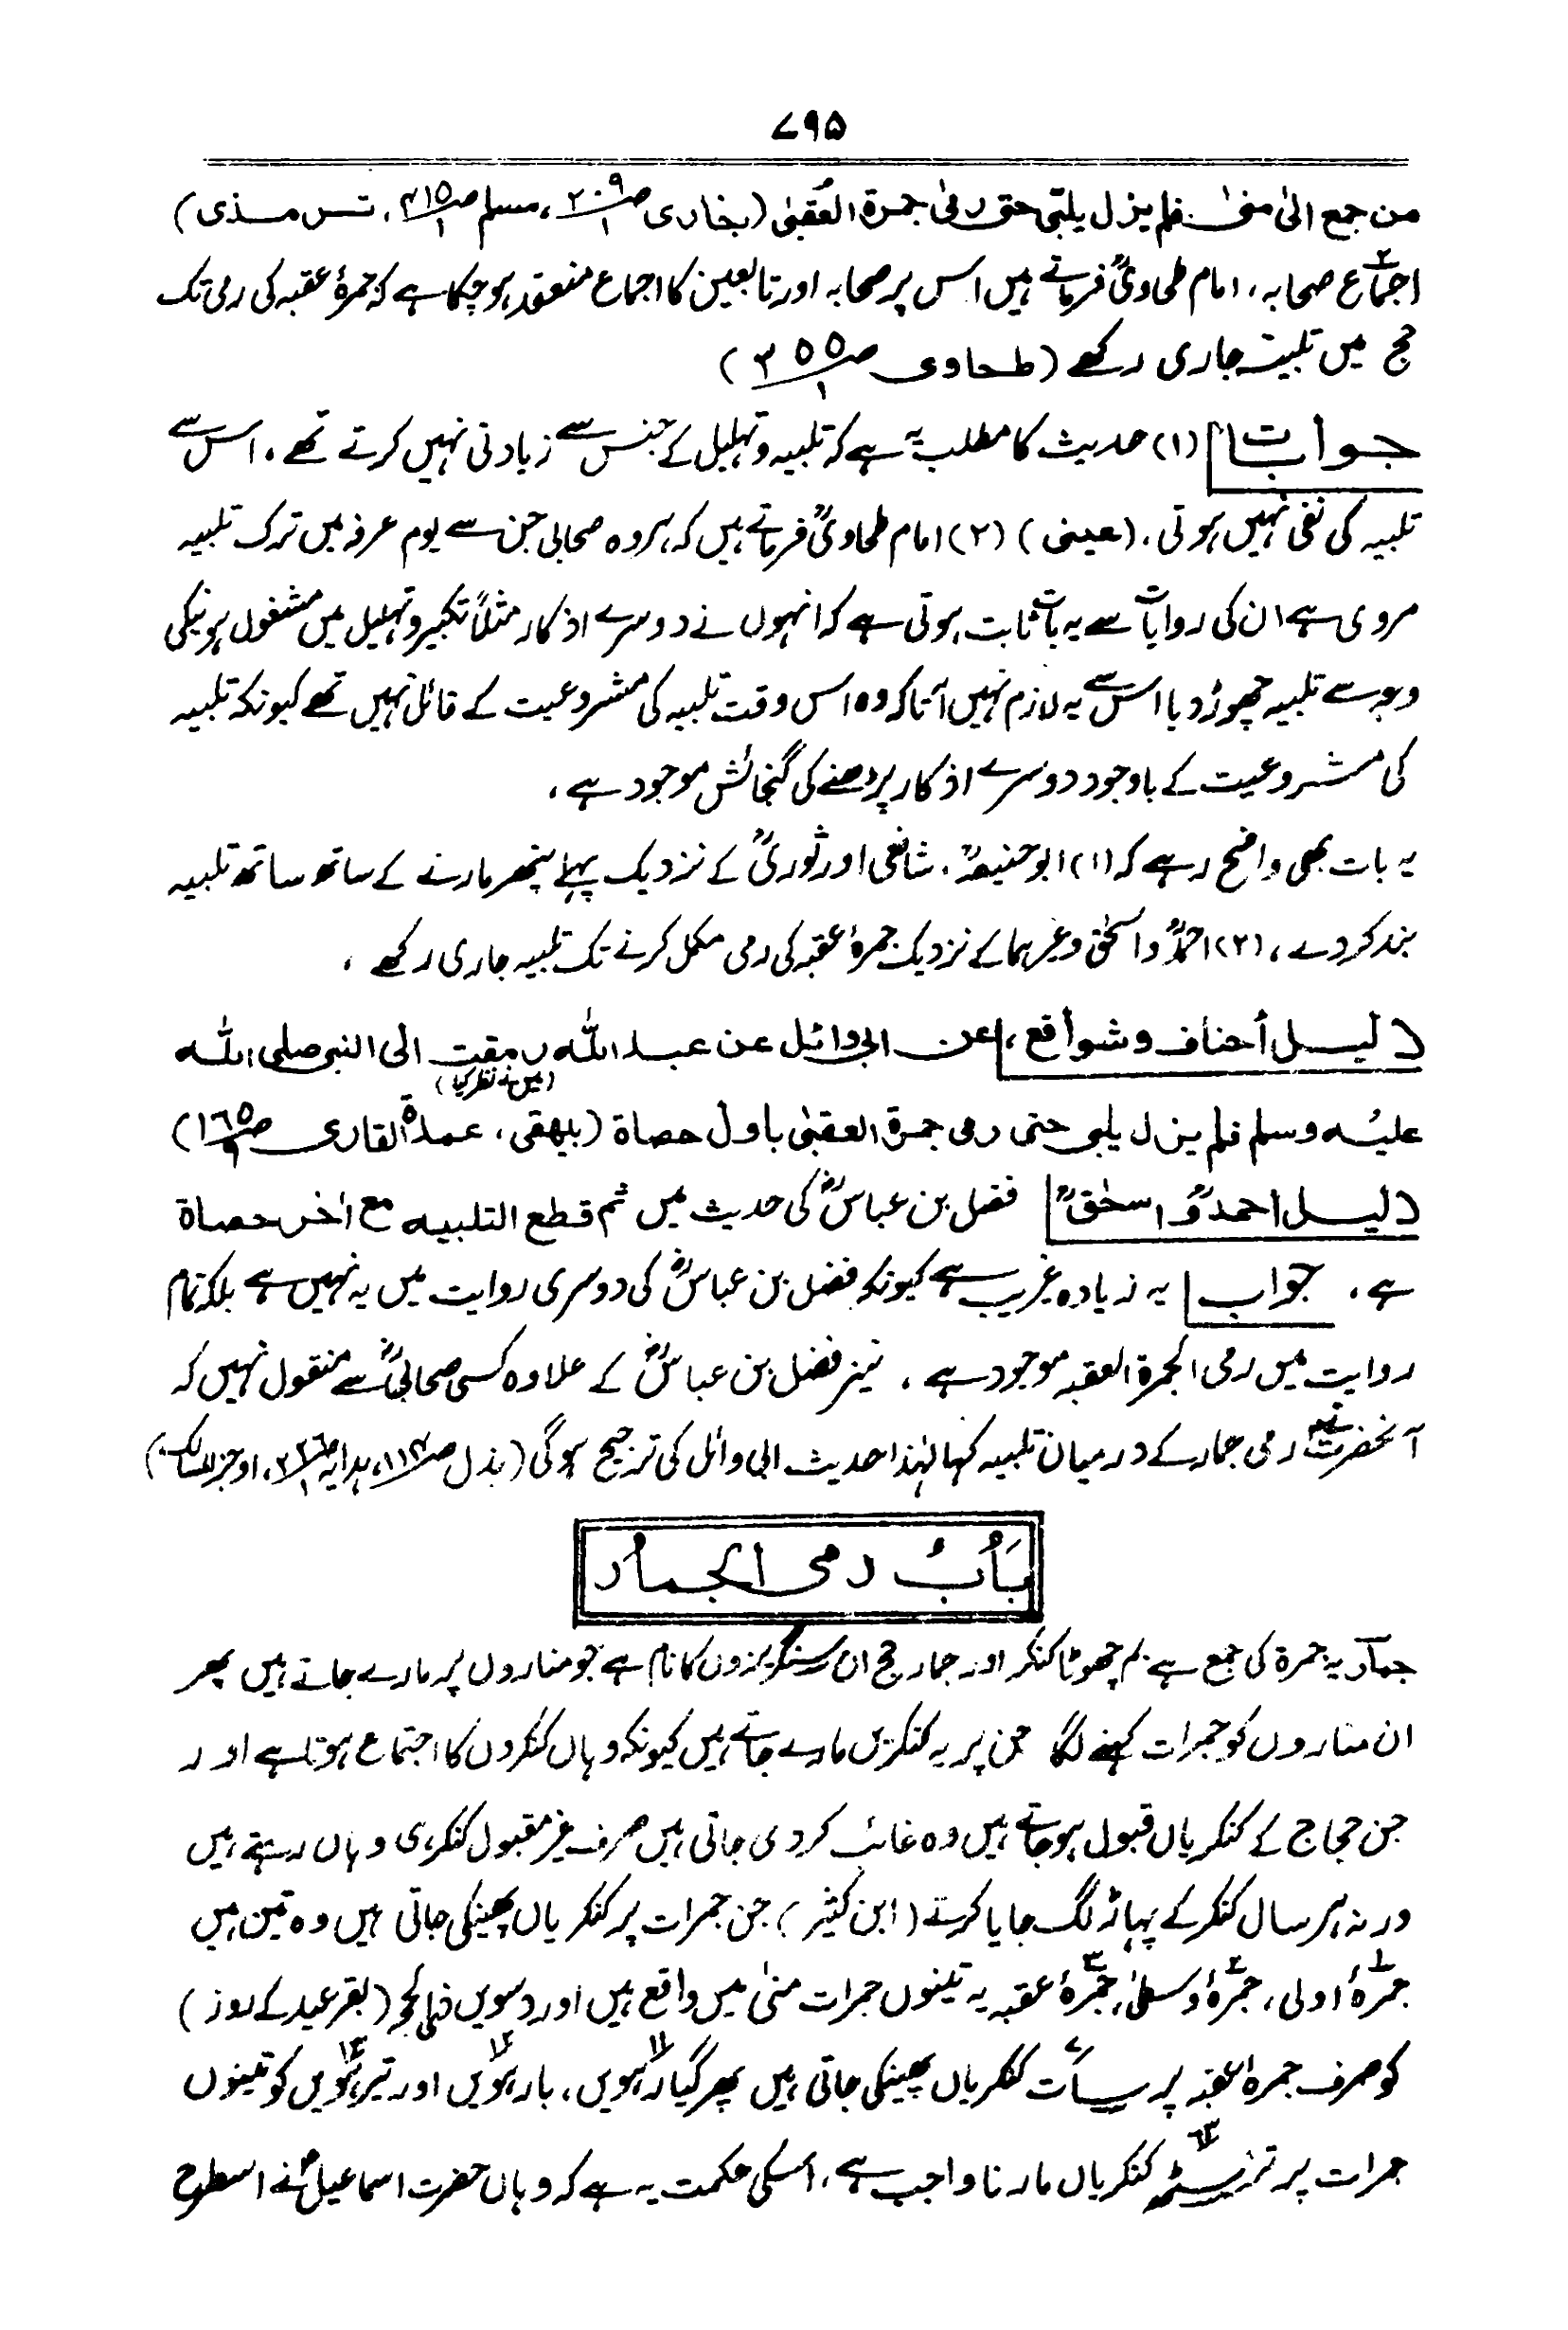 ۷۹۵
من جمع الیٰ منیٰ فلم یزل یلبّی حتی رمیٰ جمرة العُقبیٰ (بخاری ص۲۰۹/۱، مسلم ص۴۱۵/۱، ترمذی)
اجماع۲ صحابہ، امام طحاویؒ فرماتے ہیں اس پر صحابہ اور تابعین کا اجماع منعقد ہو چکا ہے کہ جمرۂ عقبہ کی رمی تک
حج میں تلبیہ جاری رکھے (طحاوی ص۳۵۵/۱)
جوابات (۱) حدیث کا مطلب یہ ہے کہ تلبیہ وتہلیل کے جنس سے زیادتی نہیں کرتے تھے، اس سے
تلبیہ کی نفی نہیں ہوتی، (عینی) (۲) امام طحاویؒ فرماتے ہیں کہ ہر وہ صحابی جن سے یوم عرفہ میں ترک تلبیہ
مروی ہے ان کی روایات سے یہ بات ثابت ہوتی ہے کہ انہوں نے دوسرے اذکار مثلاً تکبیر وتہلیل میں مشغول ہونیکی
وجہ سے تلبیہ چھوڑ دیا اس سے یہ لازم نہیں آتا کہ وہ اس وقت تلبیہ کی مشروعیت کے قائل نہیں تھے کیونکہ تلبیہ
کی مشروعیت کے باوجود دوسرے اذکار پڑھنے کی گنجائش موجود ہے،
یہ بات بھی واضح رہے کہ (۱) ابوحنیفہؒ، شافعی اور ثوریؒ کے نزدیک پہلے پتھر مارنے کے ساتھ ساتھ تلبیہ
بند کردے، (۲) احمدؒ واسحٰق وغیرہما کے نزدیک جمرۂ عقبہ کی رمی مکمل کرنے تک تلبیہ جاری رکھے،
دلیل أحناف وشوافع، عن ابی وائل عن عبد اللہ رمقت الی النبی صلی اللہ
(میں نے نظر کیا)
علیہ وسلم فلم یزل یلبی حتی رمی جمرة العقبیٰ باول حصاة (بیہقی، عمدة القاری ص۱۶۵)
دلیل احمدؒ و اسحٰقؒ فضل بن عباسؓ کی حدیث میں ثم قطع التلبیہ مع اٰخر حصاة
ہے، جواب یہ زیادہ غریب ہے کیونکہ فضل بن عباسؓ کی دوسری روایت میں یہ نہیں ہے بلکہ تمام
روایت میں رمی الجمرة العقبہ موجود ہے، نیز فضل بن عباسؓ کے علاوہ کسی صحابیؓ سے منقول نہیں کہ
آنحضرتؐ رمی جمار کے درمیان تلبیہ کہا لہٰذا حدیث ابی وائل کی ترجیح ہوگی (بذل ، ہدایہ ، اوجز المسالک)
بَابُ رمی الجمار
جمار یہ جمرة کی جمع ہے بم چھوٹا کنکر اور جمار حج ان سنگریزوں کا نام ہے جو مناروں پر مارے جاتے ہیں پھر
ان مناروں کو جمرات کہنے لگا جن پر یہ کنکریں مارے جاتے ہیں کیونکہ وہاں کنکروں کا اجتماع ہوتا ہے اور
جن حجاج کے کنکریاں قبول ہو جاتے ہیں وہ غائب کردی جاتی ہیں صرف غیر مقبول کنکری وہاں رہتے ہیں
ورنہ ہر سال کنکر کے پہاڑ لگ جایا کرتے (ابن کثیر) جن جمرات پر کنکریاں پھینکی جاتی ہیں وہ تین ہیں
جمرۂ۱ اولی، جمرۂ۲ وسطیٰ، جمرۂ۳ عقبہ یہ تینوں جمرات منیٰ میں واقع ہیں اور دسویں ذی الحجہ (بقرعید کے روز)
کو صرف جمرہ عقبہ پر سات۷ کنکریاں پھینکی جاتی ہیں پھر گیارہویں۱۱، بارہویں۱۲ اور تیرہویں۱۳ کو تینوں
جمرات پر ترسٹھ۶۳ کنکریاں مارنا واجب ہے، اسکی حکمت یہ ہے کہ وہاں حضرت اسماعیلؑ نے اسطرح